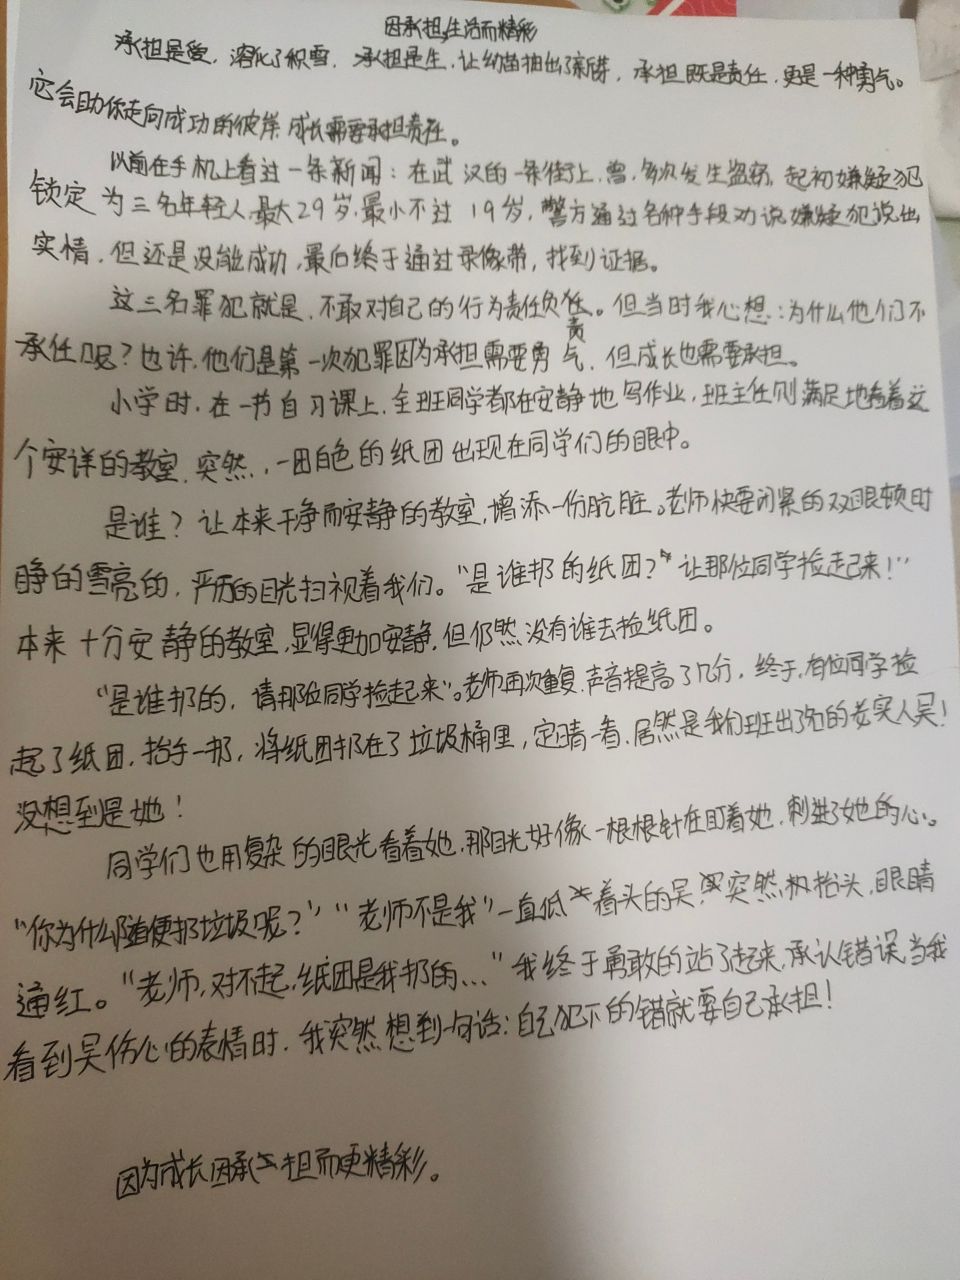 因承担,生活而精彩
承担是爱，溶化了积雪，承担是生，让幼苗抽出了新芽，承担既是责任，更是一种勇气。
它会助你走向成功的彼岸.成长需要承担责任。
以前在手机上看过一条新闻：在武汉的一条街上，曾，多次发生盗窃，起初嫌疑犯
锁定为三名年轻人，最大29岁，最小不过19岁，警方通过各种手段劝说嫌疑犯说出
实情，但还是没能成功，最后终于通过录像带，找到证据。
这三名罪犯就是，不敢对自己的行为责任负责。但当时我心想：为什么他们不
承任呢？也许，他们是第一次犯罪因为承担需要勇气，但成长也需要承担。
小学时，在一节自习课上，全班同学都在安静地写作业，班主任则满足地看着这
个安详的教室，突然，一团白色的纸团出现在同学们的眼中。
是谁？让本来干净而安静的教室，增添一份肮脏。老师快要闭紧的双眼顿时
睁的雪亮的，严厉的目光扫视着我们。“是谁扔的纸团？”让那位同学捡起来！”
本来十分安静的教室，显得更加安静，但仍然没有谁去捡纸团。
“是谁扔的，请那位同学捡起来”。老师再次重复，声音提高了几分，终于，有位同学捡
起了纸团，抬手一扔，将纸团扔在了垃圾桶里，定晴一看，居然是我们班出了名的老实人吴！
没想到是她！
同学们也用复杂的眼光看着她，那目光好像一根根针在盯着她，刺进了她的心。
“你为什么随便扔垃圾呢？”“老师不是我”一直低着头的吴，突然抬头，眼睛
通红。“老师，对不起，纸团是我扔的…”我终于勇敢的站了起来，承认错误，当我
看到吴伤心的表情时，我突然想到一句话：自己犯下的错就要自己承担！
因为成长因承担而更精彩。